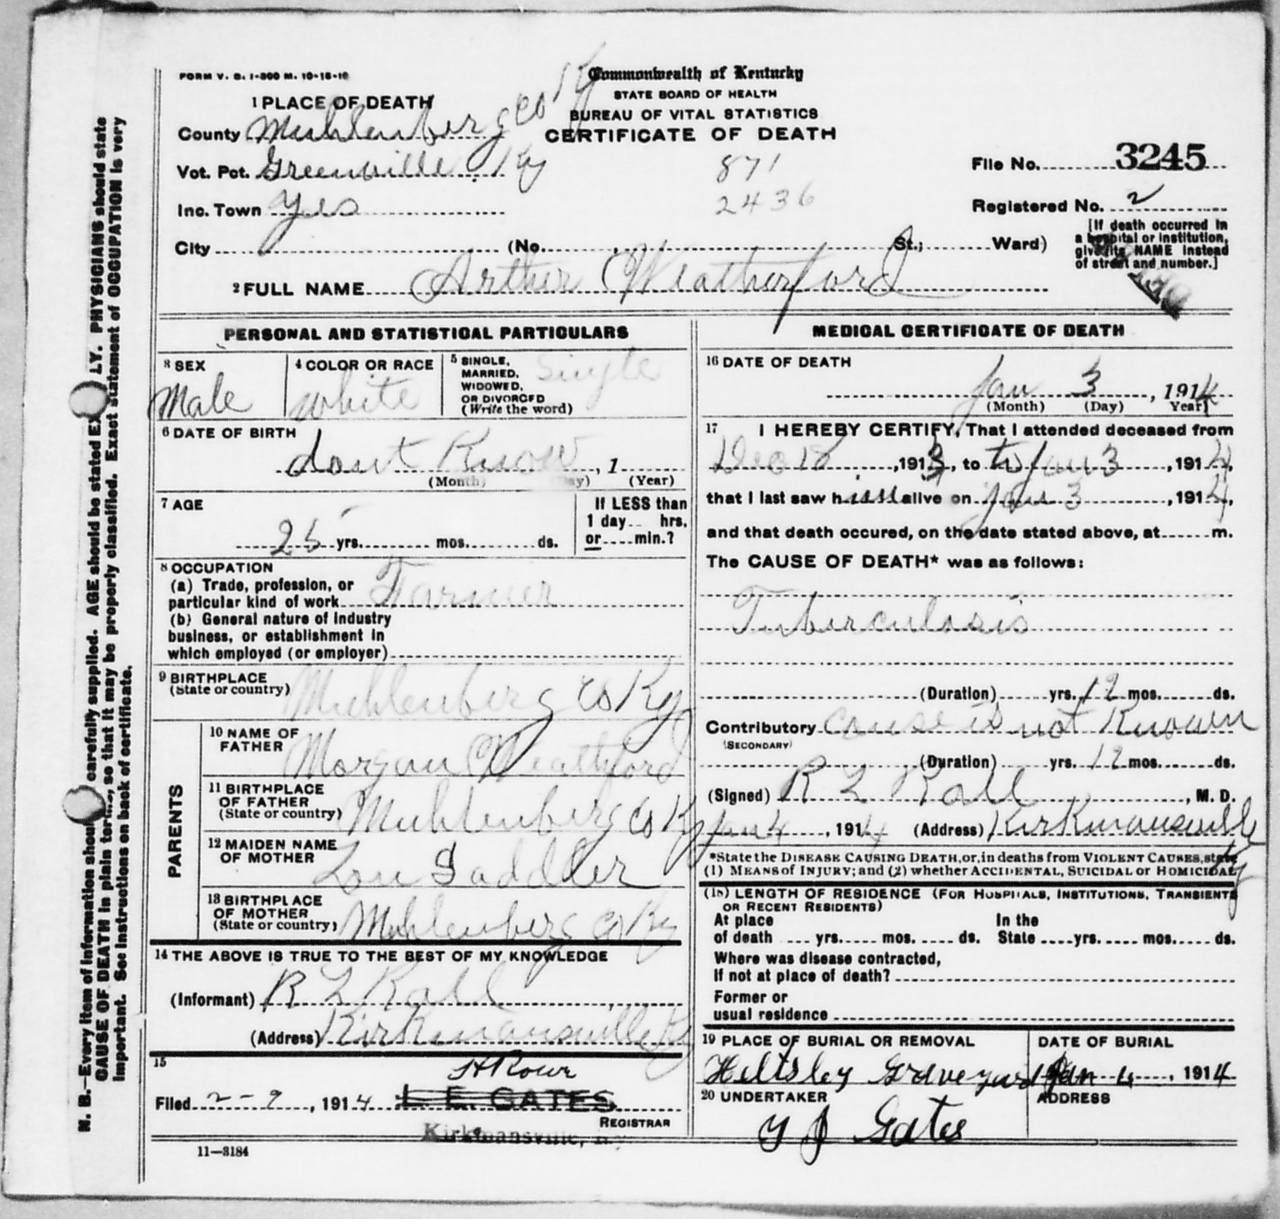 FORM V. S. 1-300 M. 10-18-10
Commonwealth of Kentucky
STATE BOARD OF HEALTH
BUREAU OF VITAL STATISTICS
CERTIFICATE OF DEATH
1 PLACE OF DEATH
County Muhlenberg Co Ky
Vot. Pct. Greenville, Ky
Inc. Town yes
City (No. , St.; Ward)
871
2436
File No. 3245
Registered No. 2
[If death occurred in
a hospital or institution,
give its NAME instead
of street and number.]
2 FULL NAME Arthur Weatherford
PERSONAL AND STATISTICAL PARTICULARS
3 SEX
Male
4 COLOR OR RACE
white
5 SINGLE,
MARRIED,
WIDOWED,
OR DIVORCED
(Write the word)
Single
6 DATE OF BIRTH
dont Know , 1
(Month) (Day) (Year)
7 AGE
25 yrs. mos. ds.
If LESS than
1 day hrs.
or min.?
8 OCCUPATION
(a) Trade, profession, or
particular kind of work Farmer
(b) General nature of Industry
business, or establishment in
which employed (or employer)
9 BIRTHPLACE
(State or country) Muhlenberg Co Ky
PARENTS
10 NAME OF
FATHER Morgan Weatherford
11 BIRTHPLACE
OF FATHER
(State or country) Muhlenberg Co Ky
12 MAIDEN NAME
OF MOTHER Lou Saddler
13 BIRTHPLACE
OF MOTHER
(State or country) Muhlenberg Co Ky
14 THE ABOVE IS TRUE TO THE BEST OF MY KNOWLEDGE
(Informant) R L Rall
(Address) Kirkmansville Ky
15
Filed 2-9, 1914 L. E. GATES
REGISTRAR
Kirkmansville, Ky.
11-3184
MEDICAL CERTIFICATE OF DEATH
16 DATE OF DEATH
Jan 3, 1914
(Month) (Day) Year
17 I HEREBY CERTIFY, That I attended deceased from
Dec 18, 1913, to to Jan 3, 1914,
that I last saw him alive on Jan 3, 1914,
and that death occured, on the date stated above, at m.
The CAUSE OF DEATH* was as follows:
Tuberculosis
(Duration) yrs. 12 mos. ds.
Contributory cause is not Known
(SECONDARY)
(Duration) yrs. 12 mos. ds.
(Signed) R L Rall, M. D.
Jan 4, 1914 (Address) Kirkmansville Ky
*State the DISEASE CAUSING DEATH, or, in deaths from VIOLENT CAUSES, state
(1) MEANS of INJURY; and (2) whether ACCIDENTAL, SUICIDAL or HOMICIDAL
(18) LENGTH OF RESIDENCE (FOR HOSPITALS, INSTITUTIONS, TRANSIENTS
OR RECENT RESIDENTS)
At place
of death yrs. mos. ds.
In the
State yrs. mos. ds.
Where was disease contracted,
If not at place of death?
Former or
usual residence
19 PLACE OF BURIAL OR REMOVAL
Heltsley Graveyard
DATE OF BURIAL
Jan 4, 1914
20 UNDERTAKER
Y J Gates
ADDRESS
N. B.—Every item of information should carefully supplied. AGE should be stated EX LY. PHYSICIANS should state
CAUSE OF DEATH in plain terms, so that it may be properly classified. Exact statement of OCCUPATION is very
important. See instructions on back of certificate.